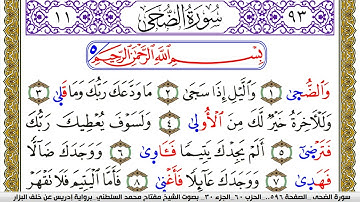 ٩٣ سُورَةُ الضُّحَى ١١
بِسْمِ اللَّهِ الرَّحْمَٰنِ الرَّحِيمِ ٥
وَالضُّحَىٰ ١ وَالَّيْلِ إِذَا سَجَىٰ ٢ مَا وَدَّعَكَ رَبُّكَ وَمَا قَلَىٰ ٣
وَلَلْآخِرَةُ خَيْرٌ لَّكَ مِنَ الْأُولَىٰ ٤ وَلَسَوْفَ يُعْطِيكَ رَبُّكَ
فَتَرْضَىٰ ٥ أَلَمْ يَجِدْكَ يَتِيمًا فَـَٔاوَىٰ ٦ وَوَجَدَكَ ضَالًّا
فَهَدَىٰ ٧ وَوَجَدَكَ عَآئِلًا فَأَغْنَىٰ ٨ فَأَمَّا الْيَتِيمَ فَلَا تَقْهَرْ
سورة الضحى الصفحة ٥٩٦.. الحزب ٦٠ الجزء ٣٠ بصوت الشيخ مفتاح محمد السلطني برواية إدريس عن خلف البزار